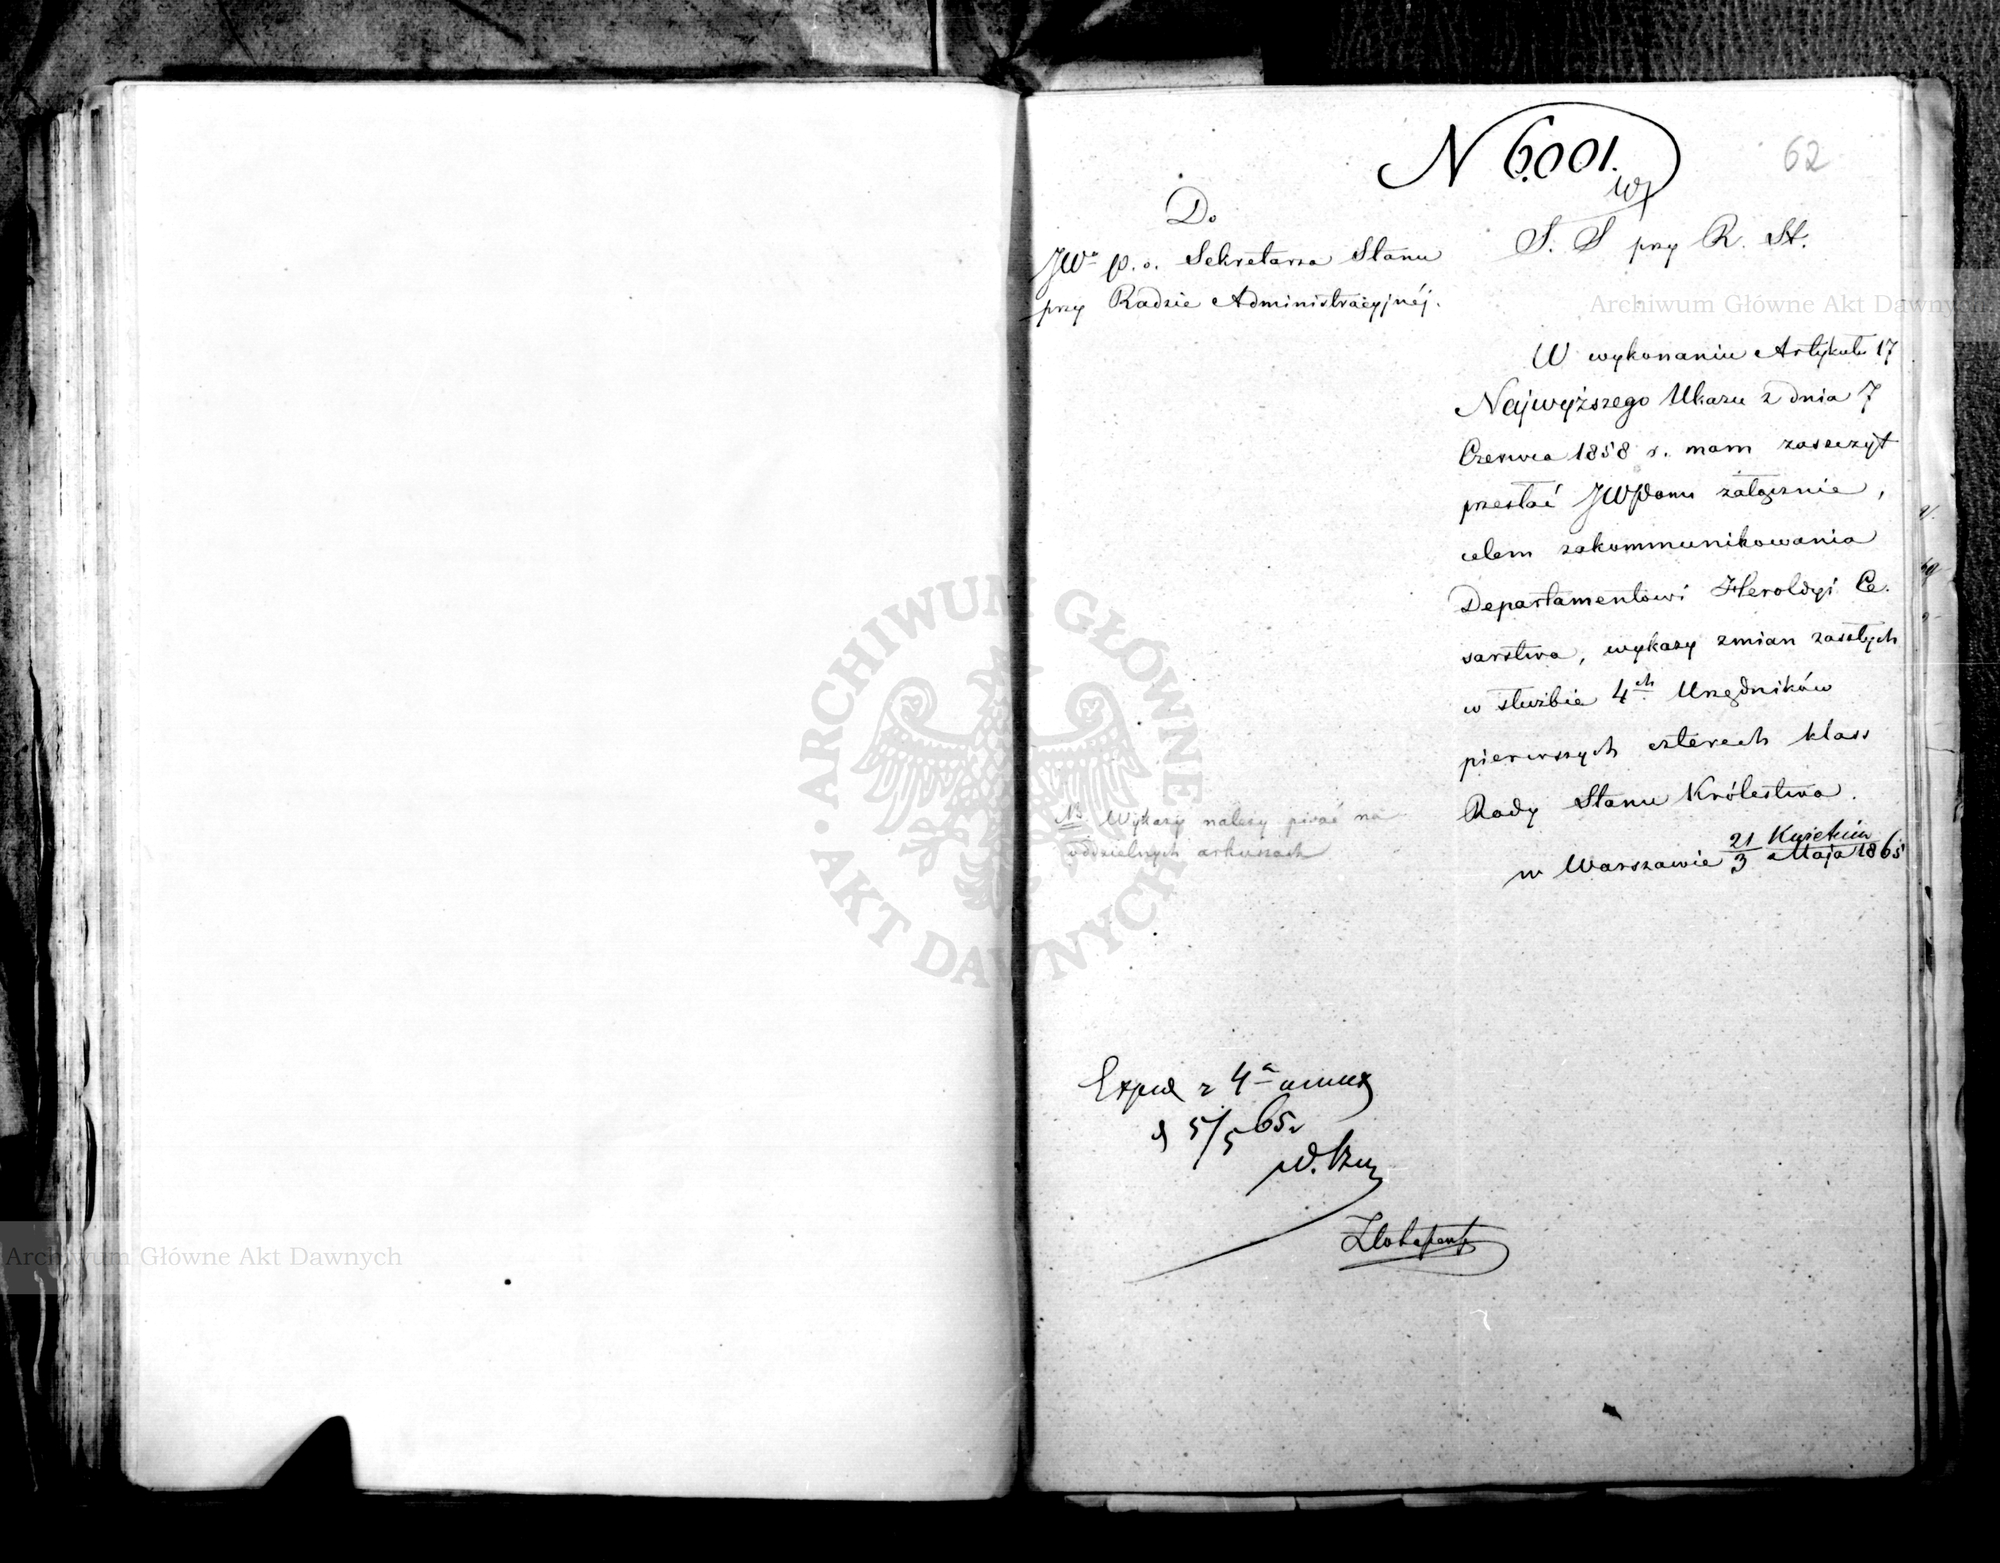 N 6.001.
62
Do
JWo p. o. Sekretarza Stanu
przy Radzie Administracyjnéj.
S. S przy R. St.
W wykonaniu Artykułu 17
Najwyższego Ukazu z dnia 7
Czerwca 1858 r. mam zaszczyt
przesłać JWPanu załącznie,
celem zakommunikowania
Departamentowi Heroldyi Ce-
sarstwa, wykazy zmian zaszłych
w służbie 4ch Urzędników
pierwszych czterech klass
Rady Stanu Królestwa.
w Warszawie 21/3 Kwietnia/Maja 1865
NB Wykazy należy pisać na
oddzielnych arkuszach
Exped z 4a
d 5/5 65r
Archiwum Główne Akt Dawnych
Archiwum Główne Akt Dawnych
ARCHIWUM GŁÓWNE AKT DAWNYCH